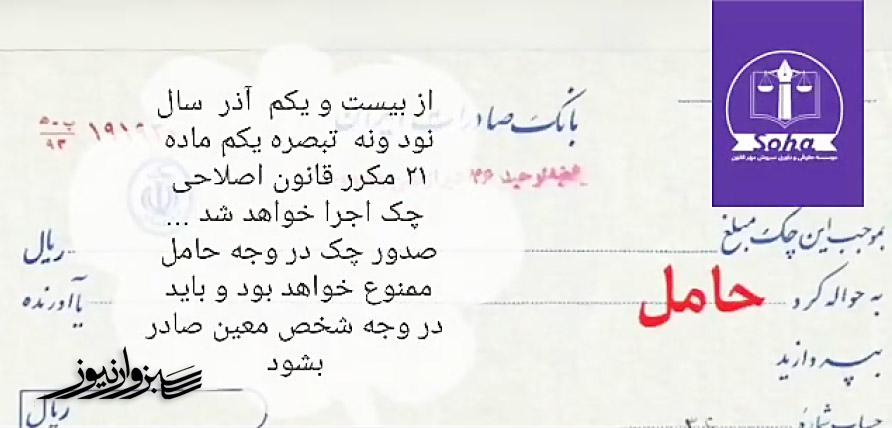 Soha
موسسه حقوقی و داوری سروش مهر قانون
بانک صادرات ایران
۱۹۱۰
از بیست و یکم آذر سال
نود ونه تبصره یکم ماده
۲۱ مکرر قانون اصلاحی
چک اجرا خواهد شد ...
صدور چک در وجه حامل
ممنوع خواهد بود و باید
در وجه شخص معین صادر
بشود
بموجب این چک مبلغ ریال
به حواله کرد حامل یا آورنده
بپردازید
سبزوارنیوز
ریال
حساب شماره